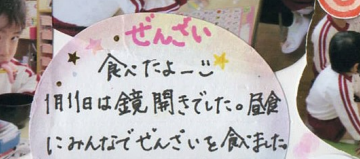 ぜんざい
食べたよーご
1月11日は鏡開きでした。昼食
にみんなでぜんざいを食べました